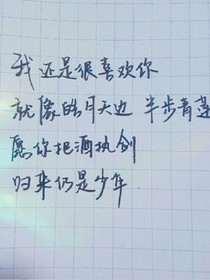 我还是很喜欢你
就像皓月天边 半步青莲
愿你把酒执剑
归来仍是少年